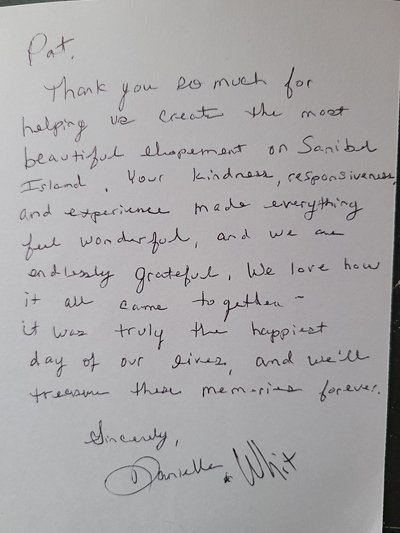 Pat,
Thank you so much for
helping us create the most
beautiful elopement on Sanibel
Island. Your kindness, responsiveness,
and experience made everything
feel wonderful, and we are
endlessly grateful. We love how
it all came together -
it was truly the happiest
day of our lives, and we'll
treasure these memories forever.
Sincerely,
Danielle & Whit